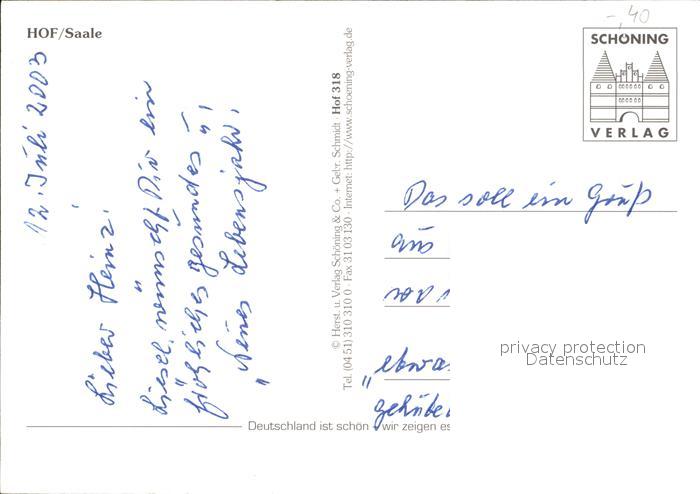 HOF/Saale
12. Juli 2003
Lieber Heinz!
Liesel wünscht Dir ein
fröhliches gesundes "!
" Neues Lebensjahr.
© Herst. u. Verlag Schöning & Co. + Gebr. Schmidt · Hof 318
Tel. (04 51) 310 310 0 · Fax 31 03 130 · Internet: http://www.schoening-verlag.de
-,40
SCHÖNING
VERLAG
Das soll ein Gruß
aus
privacy protection
Datenschutz
Deutschland ist schön - wir zeigen es